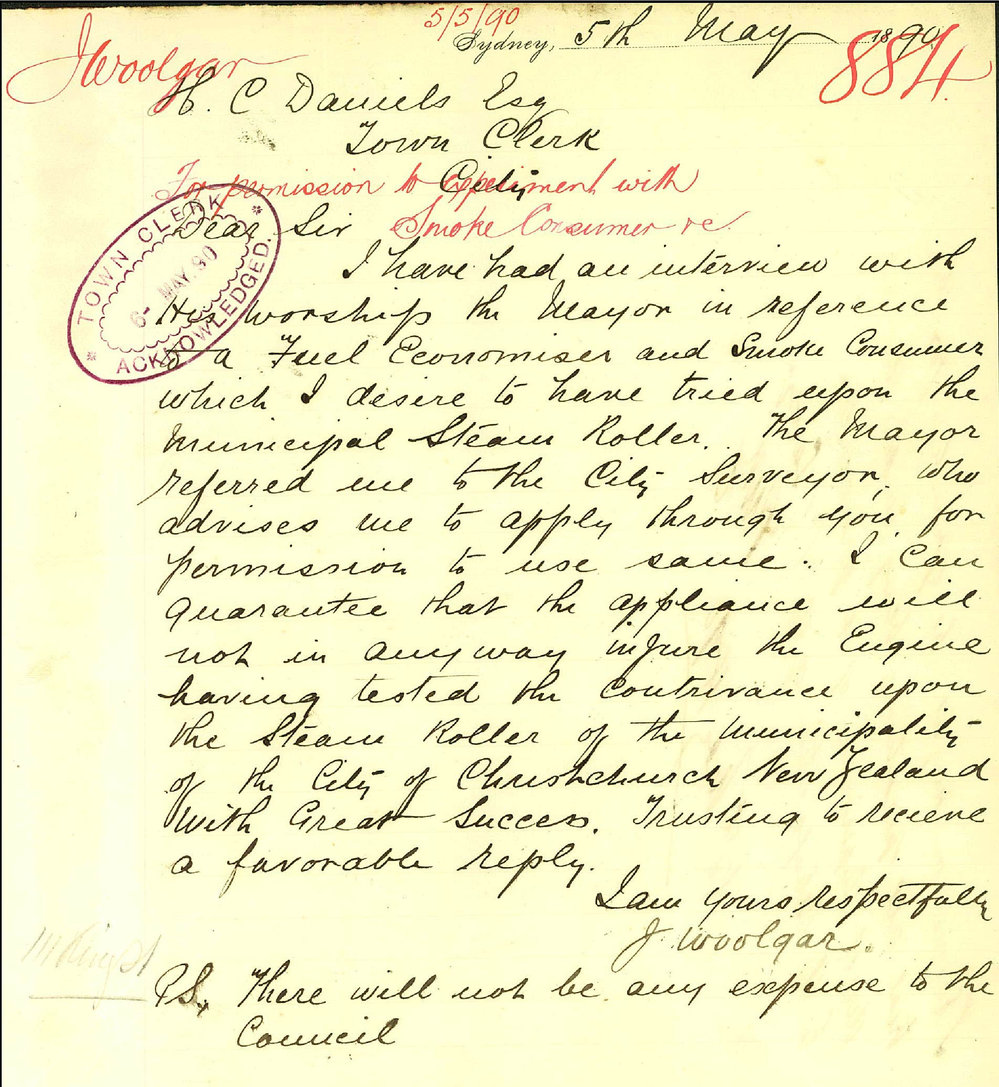 5/5/90
Sydney, 5th May 1890
J Woolgar
884.
H. C Daniels Esq
Town Clerk
City
For permission to experiment with
Smoke Consumer re.
Dear Sir
TOWN CLERK
6- MAY.90
ACKNOWLEDGED.
I have had an interview with
His worship the Mayor in reference
to a Fuel Economiser and Smoke Consumer
which I desire to have tried upon the
Municipal Steam Roller. The Mayor
referred me to the City Surveyor, who
advises me to apply through you for
permission to use same. I can
Guarantee that the appliance will
not in anyway injure the Engine
having tested the Contrivance upon
the Steam Roller of the Municipality
of the City of Christchurch New Zealand
With Great Success. Trusting to recieve
a favorable reply.
I am yours respectfully
J. Woolgar.
P.S. There will not be any expense to the
Council